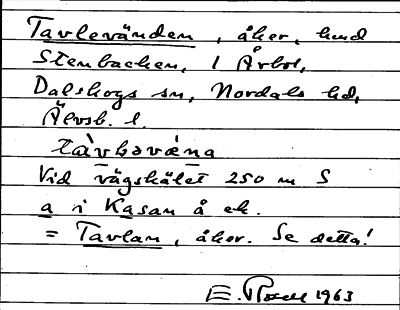 Tavlevänden, åker, hmd
Stenbacken, 1 Årbol,
Dalskogs sn, Nordals hd,
Älvsb. l.
tàvləvæ̀na
Vid vägskälet 250 m S
a i Kasan å ek.
= Tavlan, åker. Se detta!
E. 1963